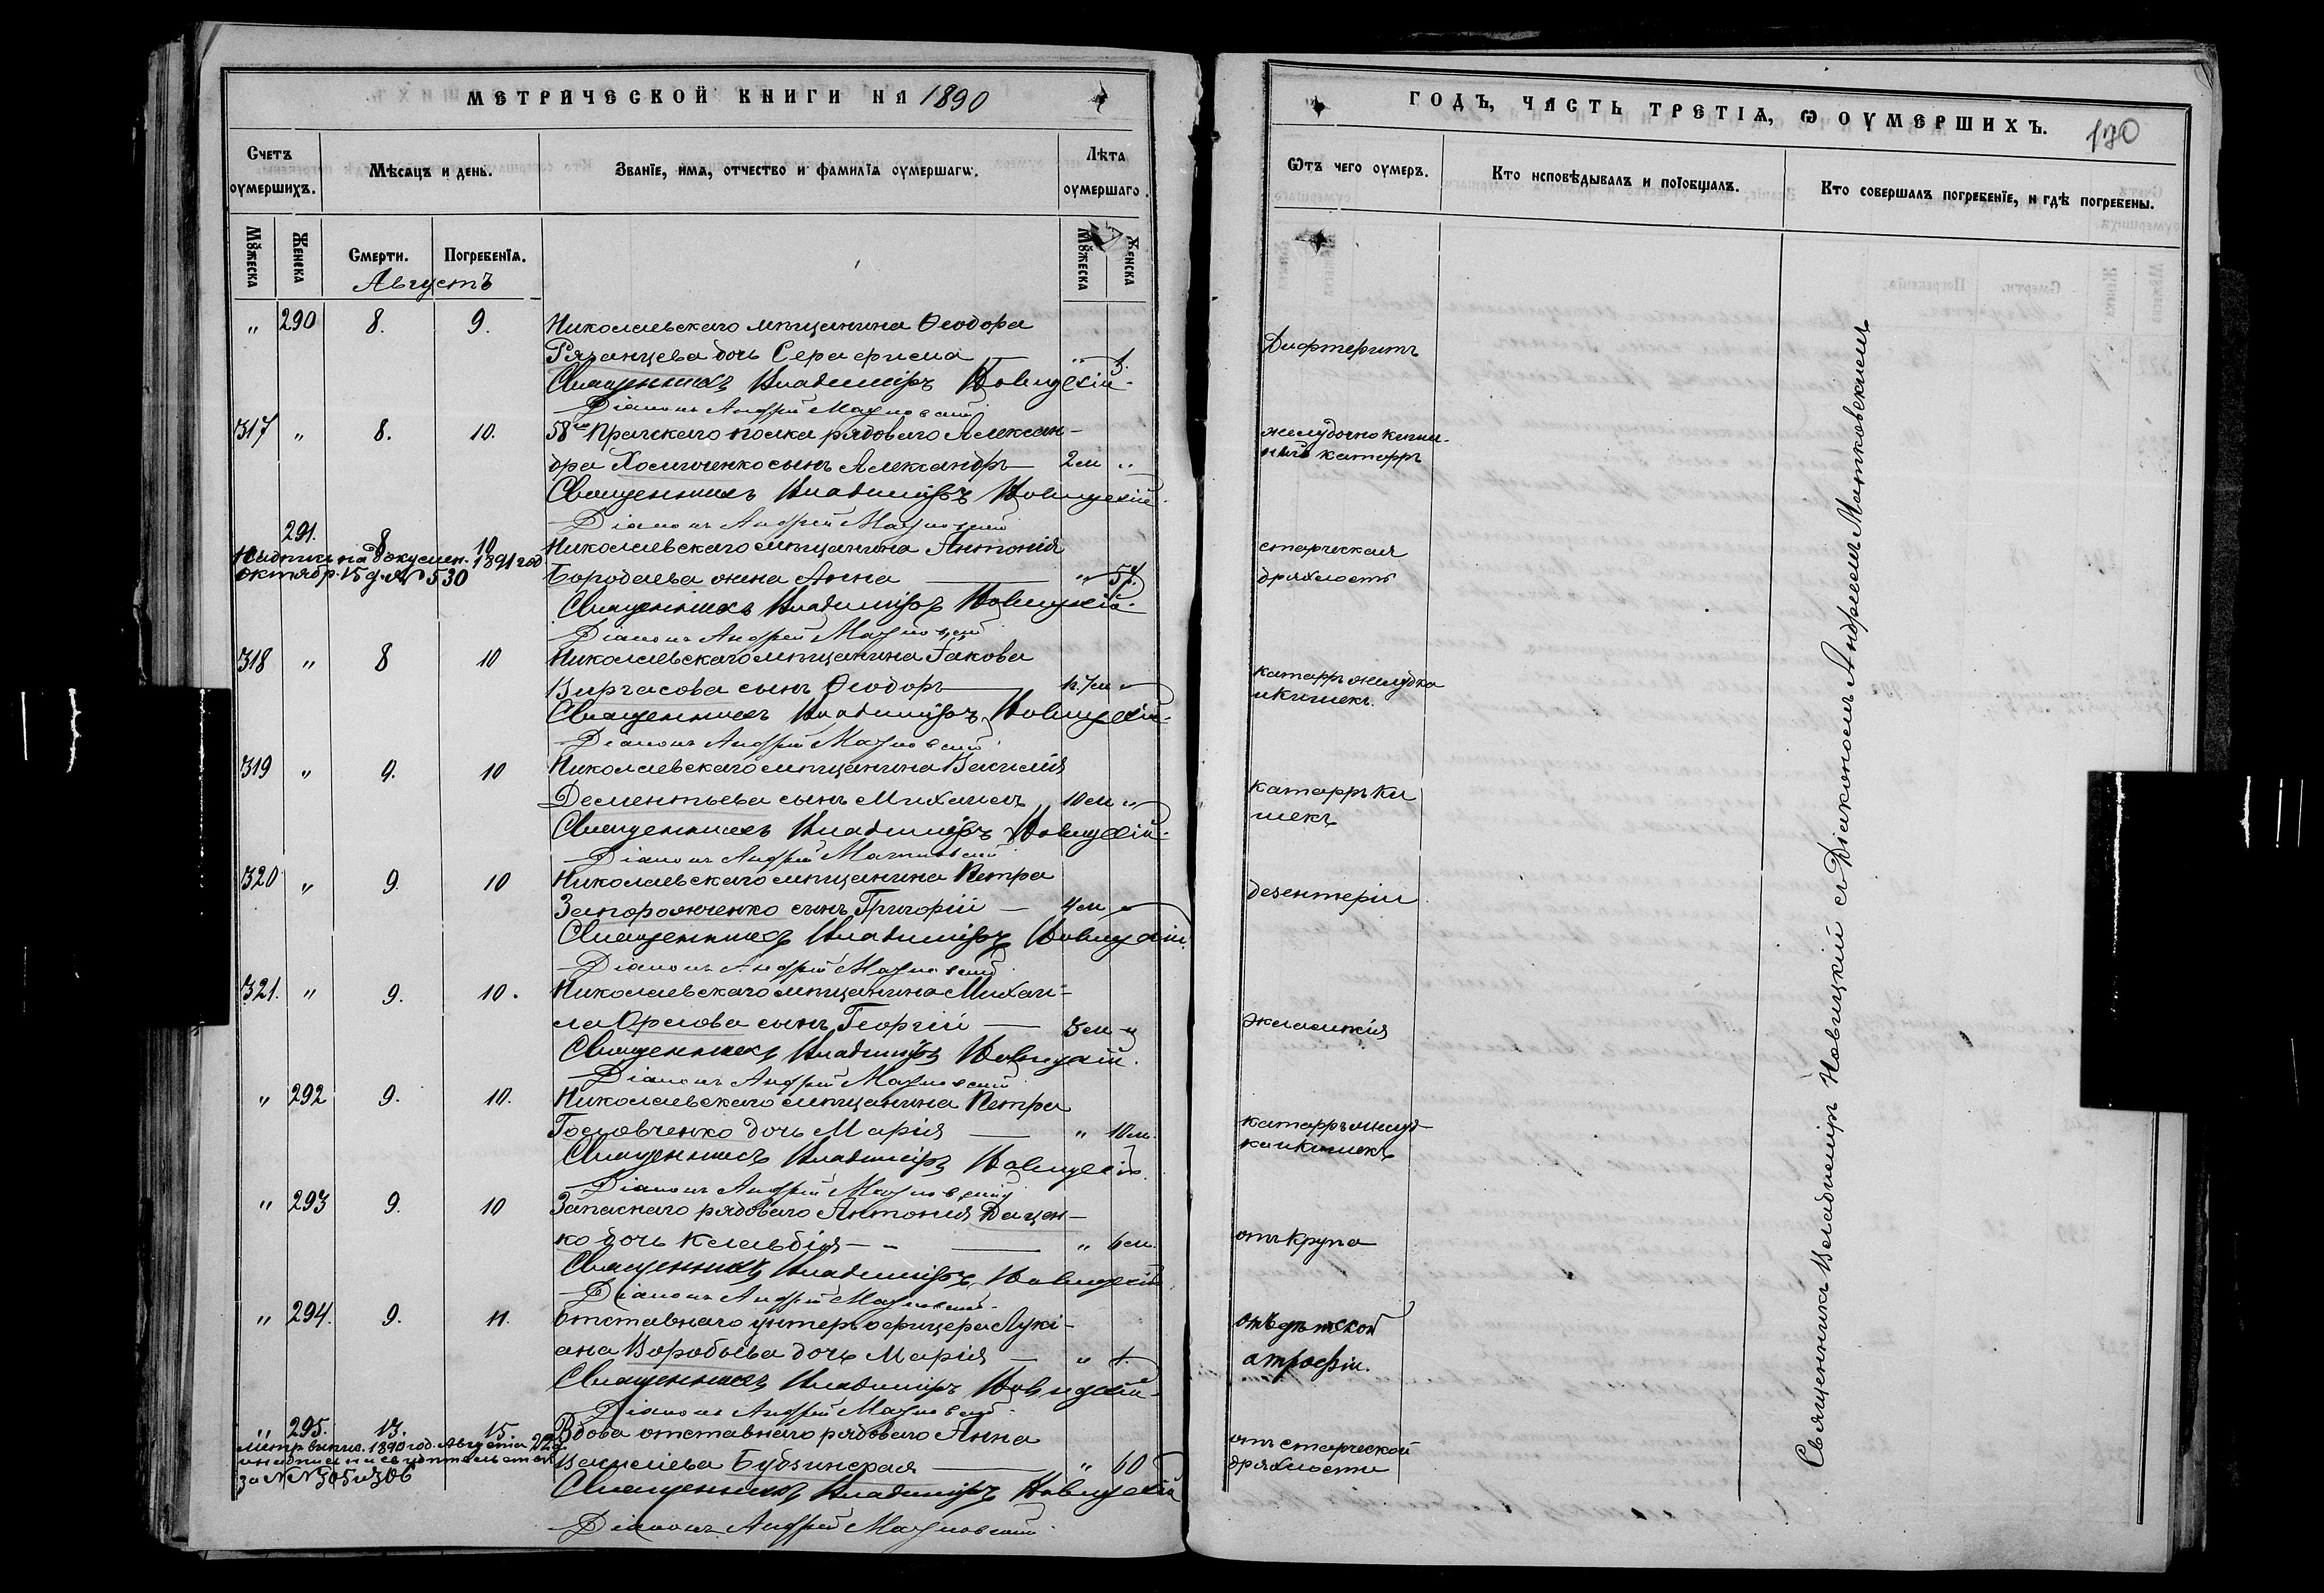 МЕТРИЧЕСКОЙ КНИГИ НА 1890
Счетъ оумершихъ.
Мѣсяцъ и день.
Званіе, имя, отчество и фамилія оумершагѡ.
Лѣта оумершаго.
Мꙋжеска
Женска
Смерти.
Погребенїя.
Мꙋжеска
Женска
Августъ
„ 290 8. 9. Николаевскаго мѣщанина Ѳеодора
Рязанцева дочь Серафима „ 1.
Священникъ Владиміръ Новицкій.
Діаконъ Андрей Матковскій
317 „ 8. 10. 58го Прагскаго полка рядоваго Алексан-
дра Хомиченко сынъ Александръ 2м „
Священникъ Владиміръ Новицкій.
Діаконъ Андрей Матковскій
291. 8 10 Николаевскаго мѣщанина Антонія
Надпись на докумен. 1891 год
октябр. 15 д. № 530
Бородаева жена Анна „ 57.
Священникъ Владиміръ Новицкій.
Діаконъ Андрей Матковскій
318 „ 8 10 Николаевскаго мѣщанина Іакова
Виргасова сынъ Ѳеодоръ 1г.7м „
Священникъ Владиміръ Новицкій.
Діаконъ Андрей Матковскій
319 „ 9. 10 Николаевскаго мѣщанина Василія
Дементьева сынъ Михаилъ 10м „
Священникъ Владиміръ Новицкій.
Діаконъ Андрей Матковскій
320 „ 9. 10 Николаевскаго мѣщанина Петра
Запорожченко сынъ Григорій 4м „
Священникъ Владиміръ Новицкій.
Діаконъ Андрей Матковскій
321. „ 9. 10. Николаевскаго мѣщанина Михаи-
ла Орлова сынъ Георгій 3м „
Священникъ Владиміръ Новицкій.
Діаконъ Андрей Матковскій
„ 292 9. 10. Николаевскаго мѣщанина Петра
Головченко дочь Марія „ 10м.
Священникъ Владиміръ Новицкій.
Діаконъ Андрей Матковскій
„ 293 9. 10 Запаснаго рядоваго Антонія Дацен-
ко дочь Клавдія „ 6м.
Священникъ Владиміръ Новицкій
Діаконъ Андрей Матковскій.
„ 294. 9. 11. Отставнаго унтеръ офицера Лукі-
ана Воробьева дочь Марія „ 1.
Священникъ Владиміръ Новицкій.
Діаконъ Андрей Матковскій
„ 295. 13. 15. Вдова отставнаго рядоваго Анна
метр выпис. 1890 год. Августа 22 д.
за №№ 305 и 306
Василіева Бубзинская „ 60
Священникъ Владиміръ Новицкій
Діаконъ Андрей Матковскій
ГОДЪ, ЧАСТЬ ТРЕТІЯ, Ѡ ОУМЕРШИХЪ.
170
Ѿтъ чего оумеръ.
Кто исповѣдывалъ и поїобщалъ.
Кто совершалъ погребенїе, и гдѣ погребены.
Дифтеритъ
желудочно кишеч-
ный катарръ
старческая
дряхлость
катарръ желудка
и кишекъ.
катарръ ки
шекъ
дезентеріи
эклампсія
катарръ желуд-
ка и кишекъ
отъ крупа
отъ дѣтской
атрофіи.
отъ старческой
дряхлости
Священникъ Владиміръ Новицкій съ Діакономъ Андреемъ Матковскимъ